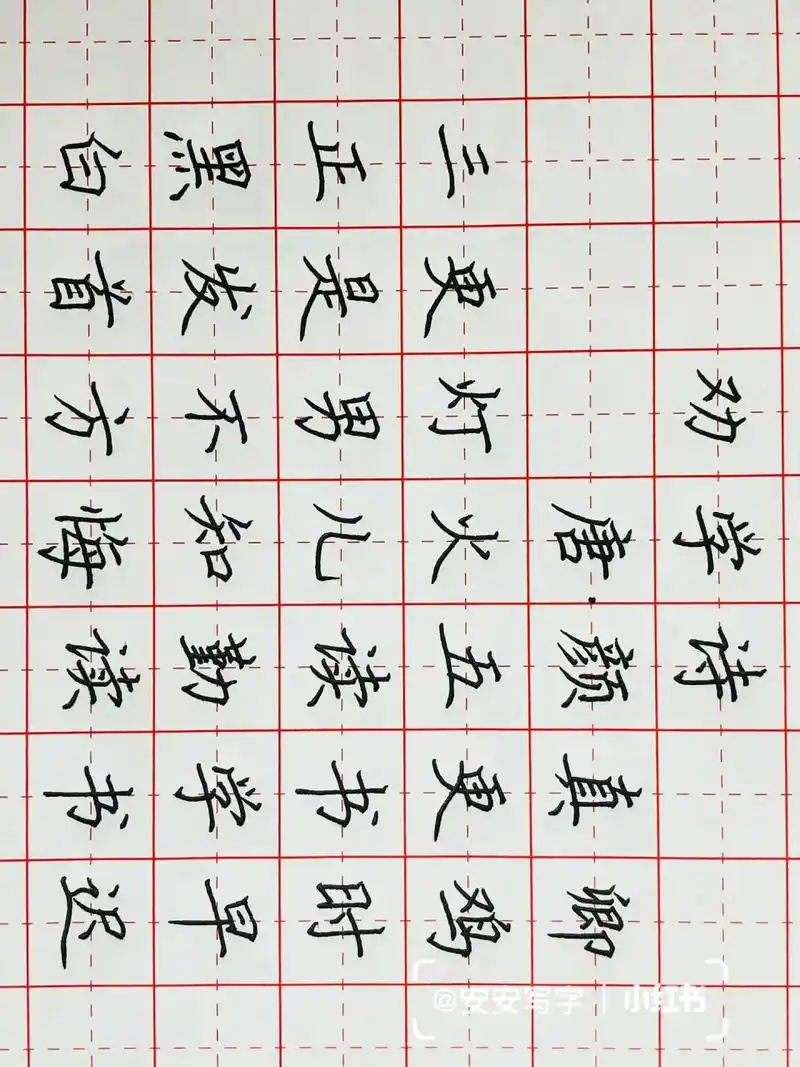 劝学诗
唐·颜真卿
三更灯火五更鸡
正是男儿读书时
黑发不知勤学早
白首方悔读书迟
@安安写字 | 小红书